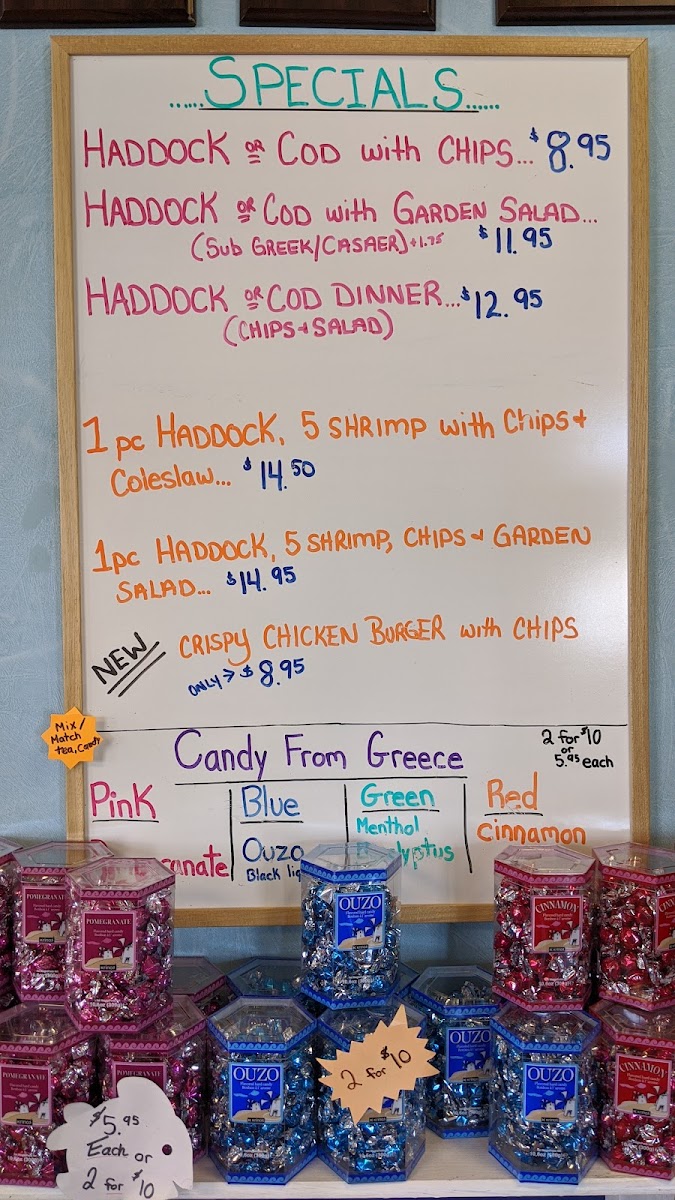 ......SPECIALS......
HADDOCK OR COD with CHIPS... $8.95
HADDOCK OR COD with GARDEN SALAD...
(SUB GREEK/CASAER)+1.75 $11.95
HADDOCK OR COD DINNER... $12.95
(CHIPS + SALAD)
1 pc HADDOCK, 5 SHRIMP with Chips +
Coleslaw... $14.50
1pc HADDOCK, 5 SHRIMP, CHIPS + GARDEN
SALAD... $14.95
NEW CRISPY CHICKEN BURGER with CHIPS
ONLY > $8.95
Mix/
Match
tea, Candy
Candy From Greece
2 for $10
or
5.95 each
Pink
Blue
Ouzo
Black
Green
Menthol
Red
Cinnamon
POMEGRANATE
POMEGRANATE
OUZO
CINNAMON
POMEGRANATE
OUZO
OUZO
OUZO
CINNAMON
2 for $10
$5.95
Each or
2 for $10